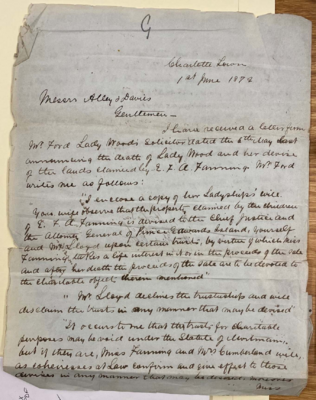 G
Charlotte Town
1st June 1872
Messrs Alley & Davies
Gentlemen
I have received a letter from
Mr. Ford Lady Wood's Solicitor dated the 6th day
announcing the death of Lady Wood and her devise
of the lands claimed by E. L. A. Fanning. Mr. Ford
writes me as follows:
"I enclose a copy of her Ladyship's will
You will observe that the property claimed by the children
of E. L. A. Fanning is devised to the Chief Justice and
the Attorney General of Prince Edward Island, yourself
and Mr. Lloyd upon certain trusts, by virtue of which Miss
Fanning takes a life interest in it or in the proceeds of the sale
and after her death the proceeds of the sale are to be devoted to
the charitable object therein mentioned"
"Mr. Lloyd declines the trusteeship and will
disclaim the trust in any manner that may be advised
"It occurs to me that the trusts for charitable
purposes may be void under the Statute of
but if they are, Miss Fanning and Mrs Cumberland will,
as coheiresses at Law confirm and give effect to those
devises in any manner that may be
Miss